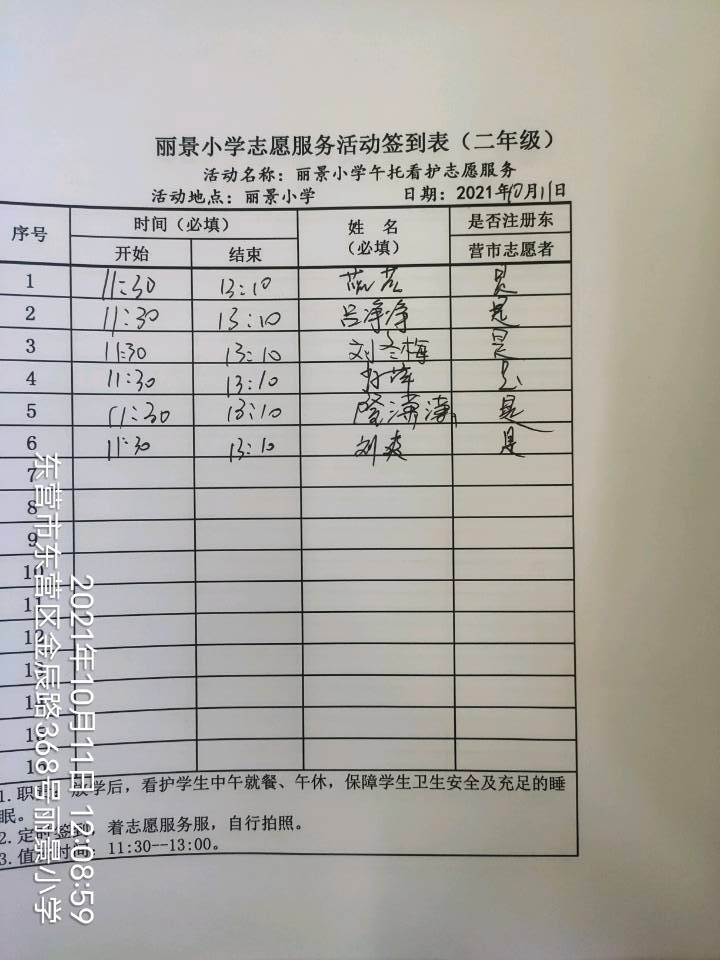 丽景小学志愿服务活动签到表（二年级）
活动名称：丽景小学午托看护志愿服务
活动地点：丽景小学 日期：2021年10月11日
序号 时间（必填） 姓名（必填） 是否注册东营市志愿者
开始 结束
1 11:30 13:10 是
2 11:30 13:10 吕净净 是
3 11:30 13:10 刘冬梅 是
4 11:30 13:10 是
5 11:30 13:10 隆潇潇 是
6 11:30 13:10 刘爽 是
7
8
9
10
11
12
13
1.职责：放学后，看护学生中午就餐、午休，保障学生卫生安全及充足的睡
眠。
2.定时签到，着志愿服务服，自行拍照。
3.值 时间：11:30--13:00。
2021年10月11日 12:08:59
东营市东营区金辰路368号丽景小学